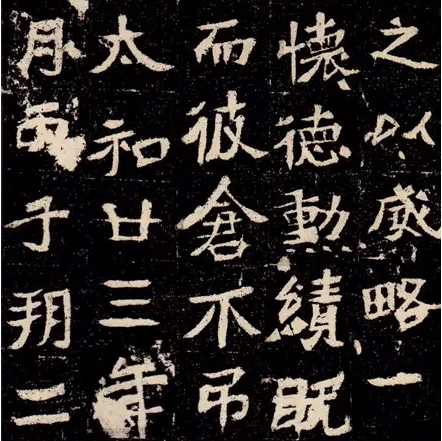 之以威略一
懷德勳績既
而彼倉不吊
太和廿三年
月丙子朔二